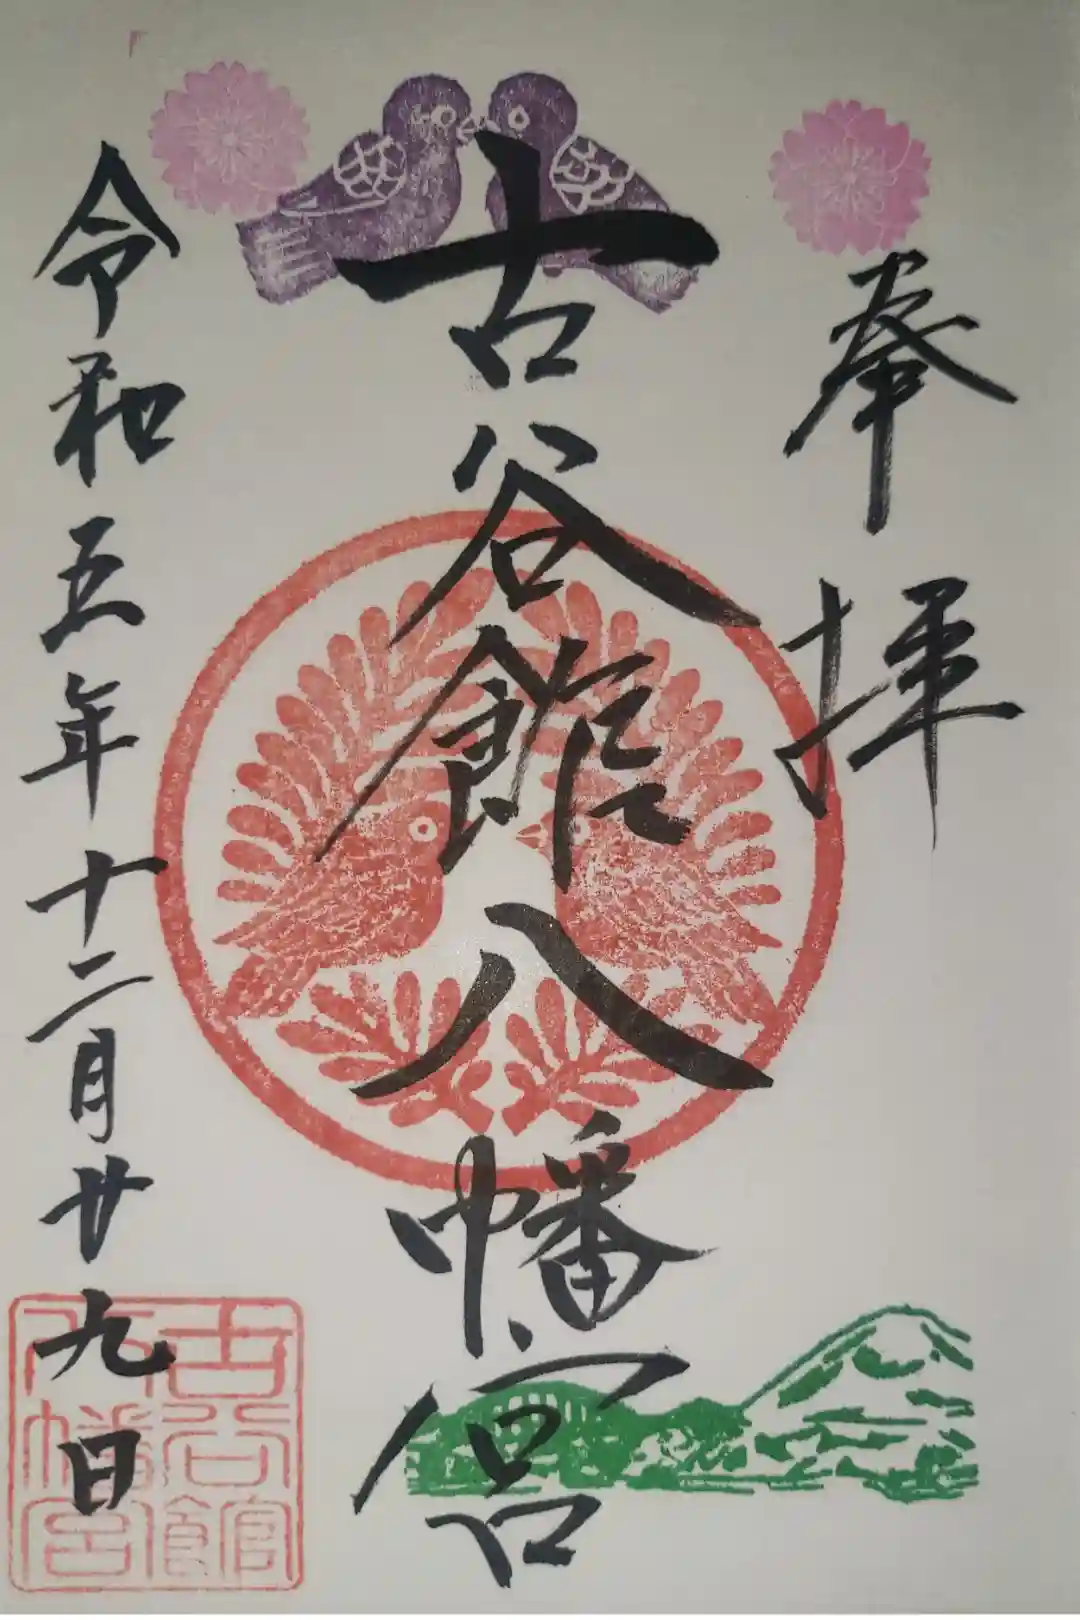 奉拝
古谷館八幡宮
令和五年十二月廿九日
古谷館
八幡宮